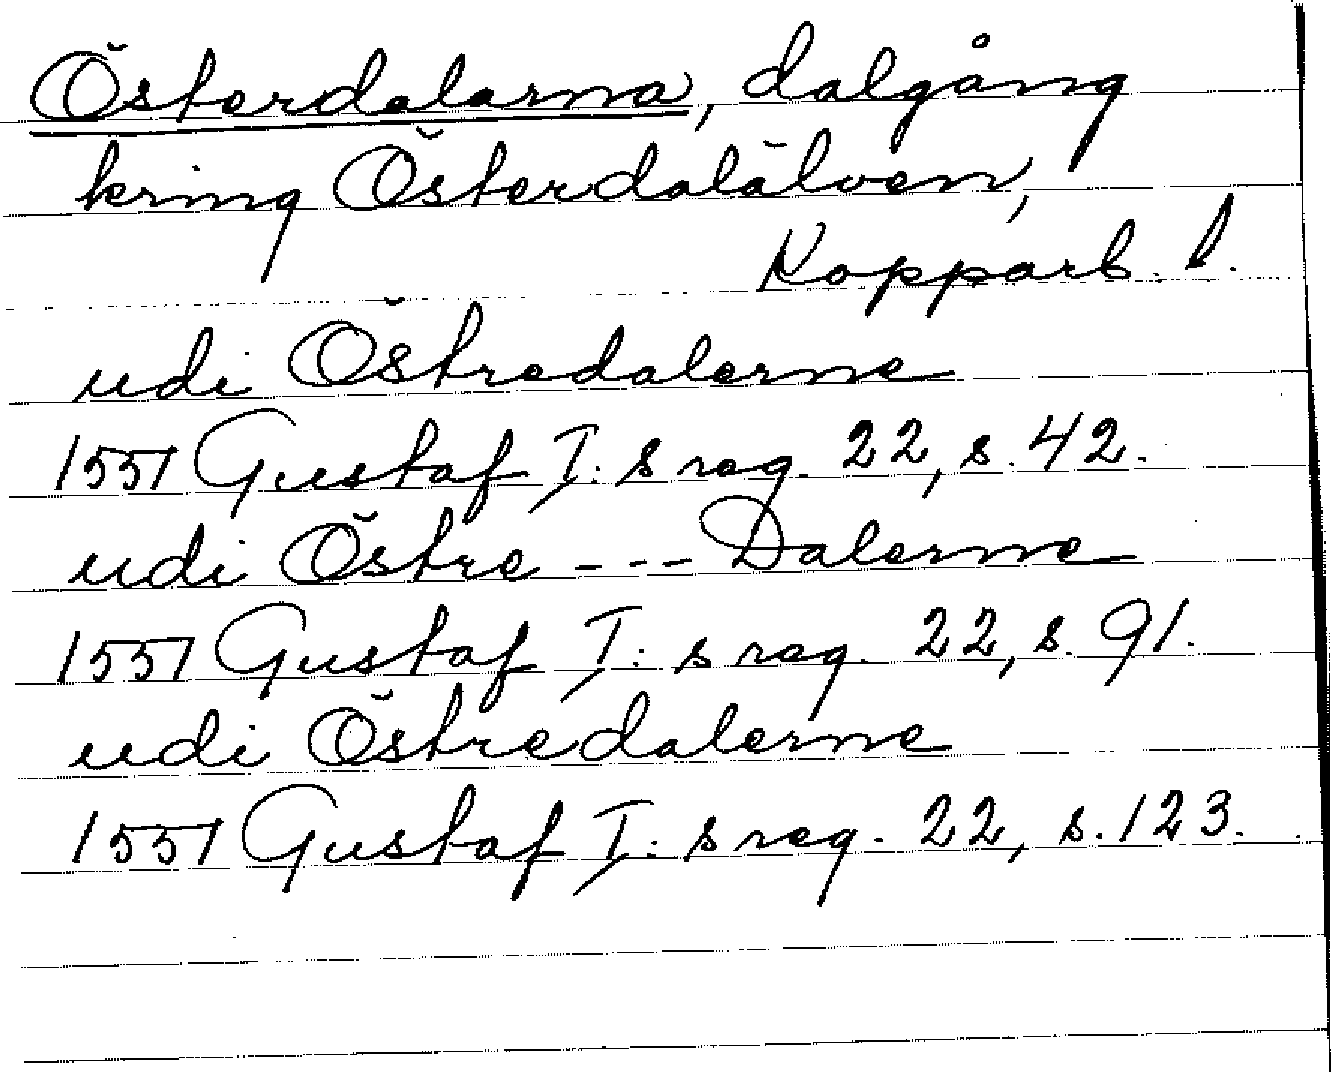 Österdalarna, dalgång
kring Österdalälven,
Kopparb. l.
udi Östredalerne
1551 Gustaf I:s reg. 22, s. 42.
udi Östre --- Dalerne
1551 Gustaf I:s reg. 22, s. 91.
udi Östredalerne
1551 Gustaf I:s reg. 22, s. 123.